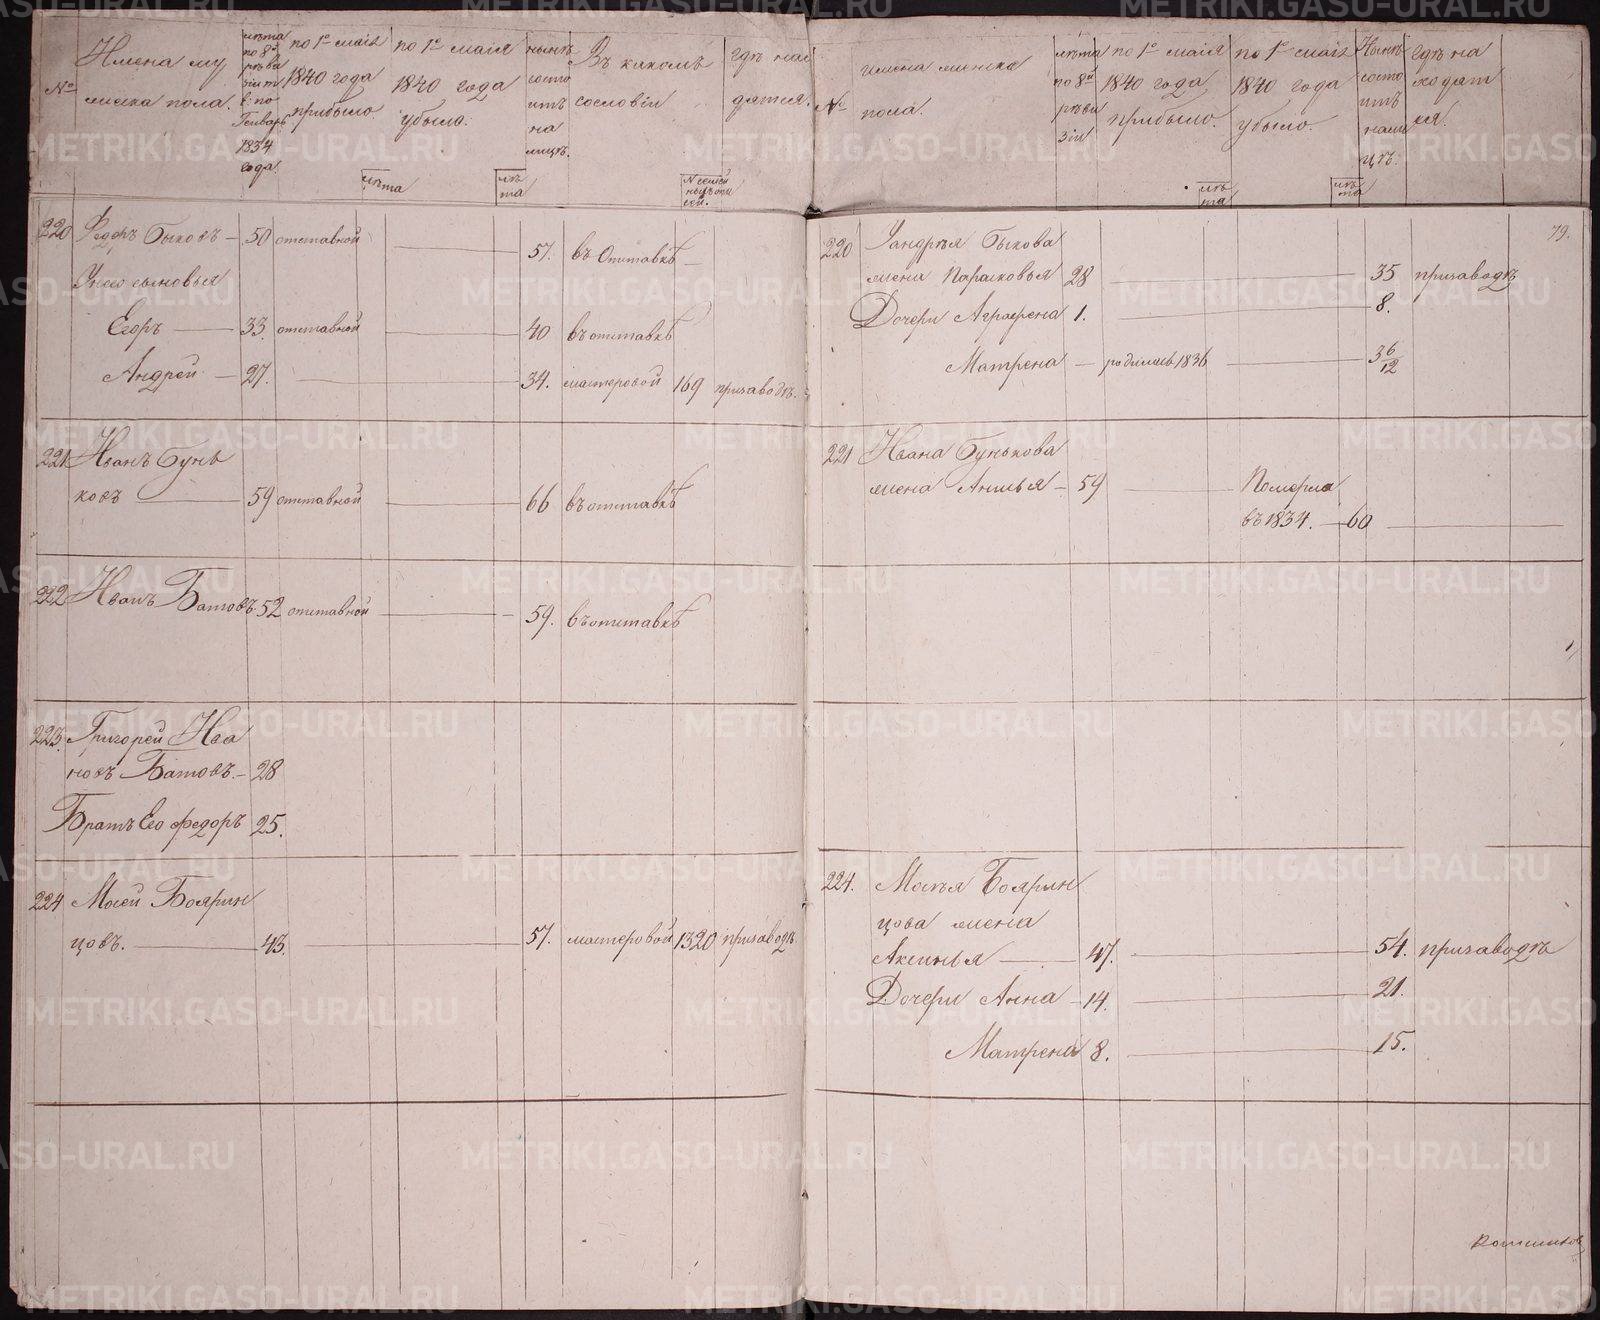 №
Имена му
жеска пола.
лѣта
по 8й
ревизіи
по
Генварь
1834
года
по 1е маія
1840 года
прибыло.
лѣта
по 1е маія
1840 года
убыло.
лѣ
та
нынѣ
состо
итъ
на
лицѣ.
Въ какомъ
сословіи
№ семей
гдѣ нахо
дятся.
220 Федоръ Быковъ — 50 отставной — 57. въ отставкѣ —
У него сыновья
Егоръ — 33. отставной — 40 въ отставкѣ
Андрей — 27. — 34. мастеровой 169 при заводѣ.
221 Иванъ Бунь
ковъ — 59 отставной — 66 въ отставкѣ
222 Иванъ Батовъ 52 отставной — 59. въ отставкѣ
223. Григорей Ива
новъ Батовъ — 28
Братъ Его Федоръ 25.
224 Мосей Боярин
цовъ. — 43. — 57. мастеровой 1320 при заводѣ
№
имена женска
пола.
лѣта
по 8й
реви
зіи
по 1е маія
1840 года
прибыло.
лѣ
та
по 1е маія
1840 года
убыло.
лѣ
та
Нынѣ
состо
итъ
на ли
цѣ.
гдѣ на
ходят
ся.
79.
220 Андрѣя Быкова
жена Парасковья 28 — 35 при заводѣ
Дочери Аграфена 1. — 8.
Матрена — родилась 1836 — 3 6/12
221 Ивана Бунькова
жена Анисья — 59 — Померла
въ 1834. — 60 —
224. Мосея Боярин
цова жена
Аксинья — 47. — 54. при заводѣ
Дочери Анна — 14. — 21.
Матрена 8. — 15.
METRIKI.GASO-URAL.RU